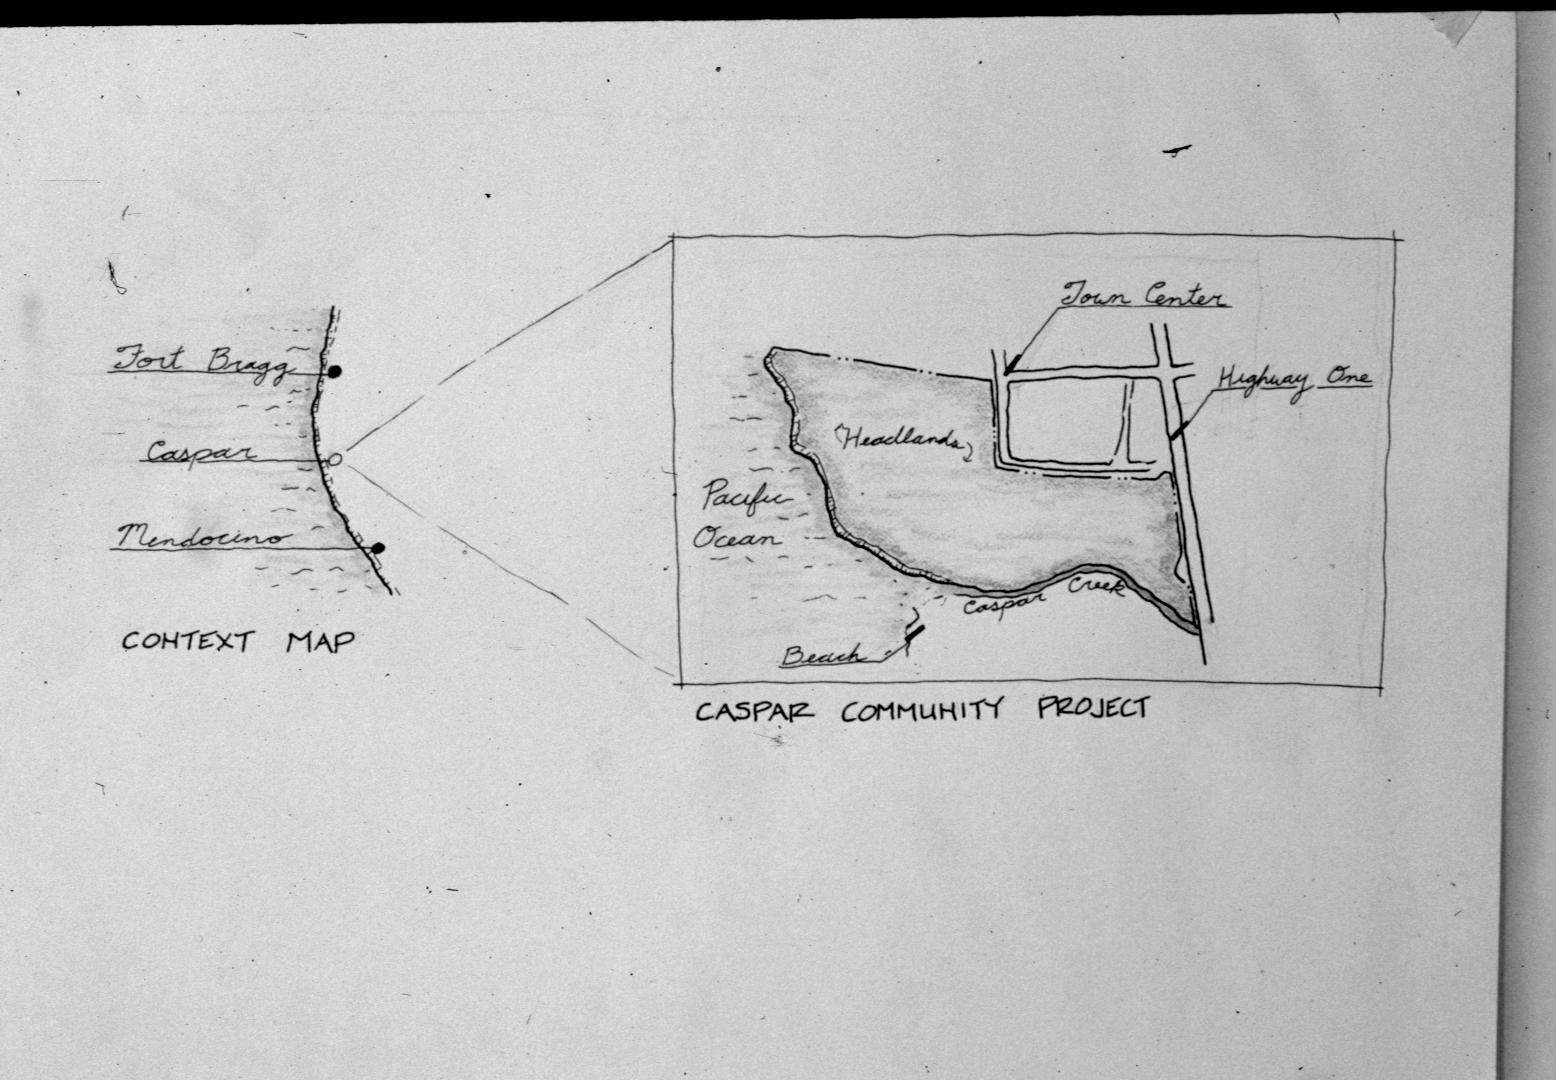 Fort Bragg
Caspar
Mendocino
CONTEXT MAP
Town Center
Highway One
Headlands
Pacific
Ocean
Caspar Creek
Beach
CASPAR COMMUNITY PROJECT